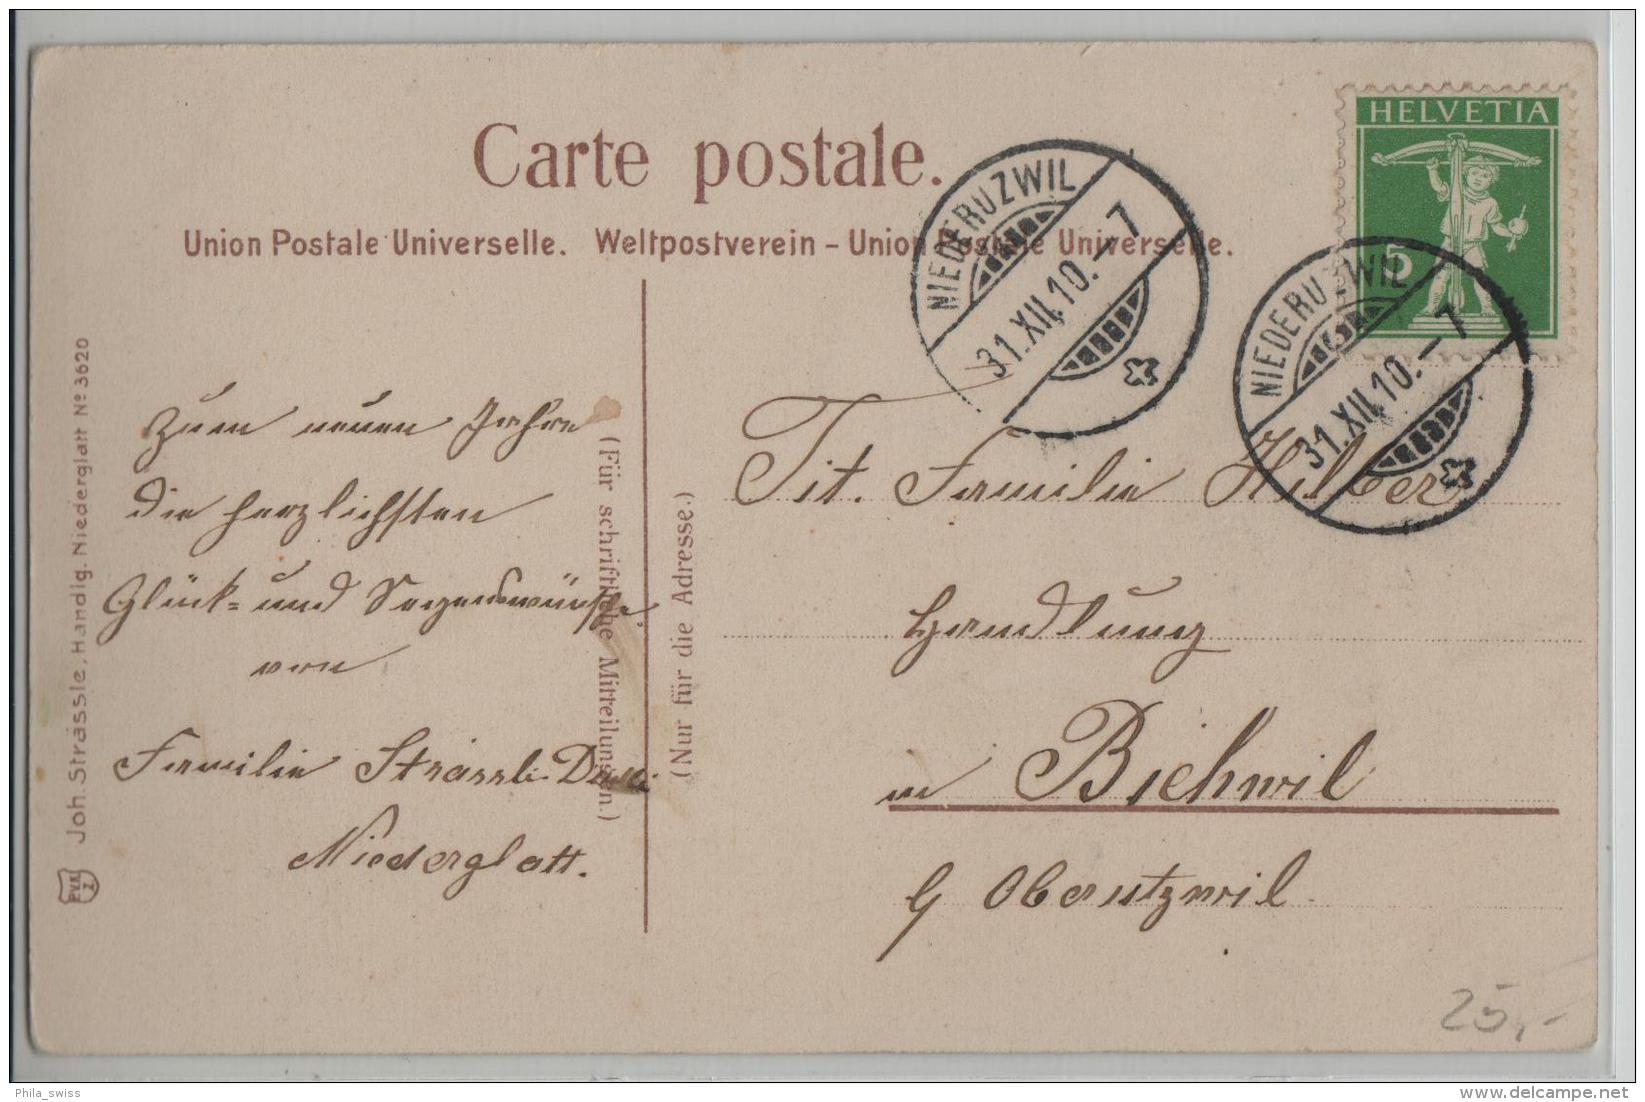 Carte postale.
Union Postale Universelle. Weltpostverein - Union Postale Universelle.
HELVETIA
5
NIEDERUZWIL
31.XII.10.-7
NIEDERUZWIL
31.XII.10.-7
Joh. Strässle, Handlg. Niederglatt № 3620
(Für schriftliche Mitteilungen.)
(Nur für die Adresse.)
Zum neuen Jahre
die herzlichsten
Glück- und Segenswünsche
von
Familie Strässle
Niederglatt.
Tit. Familie Hilber
Handlung
in Bichwil
b/ Oberutzwil.
25,-
Phila_swiss